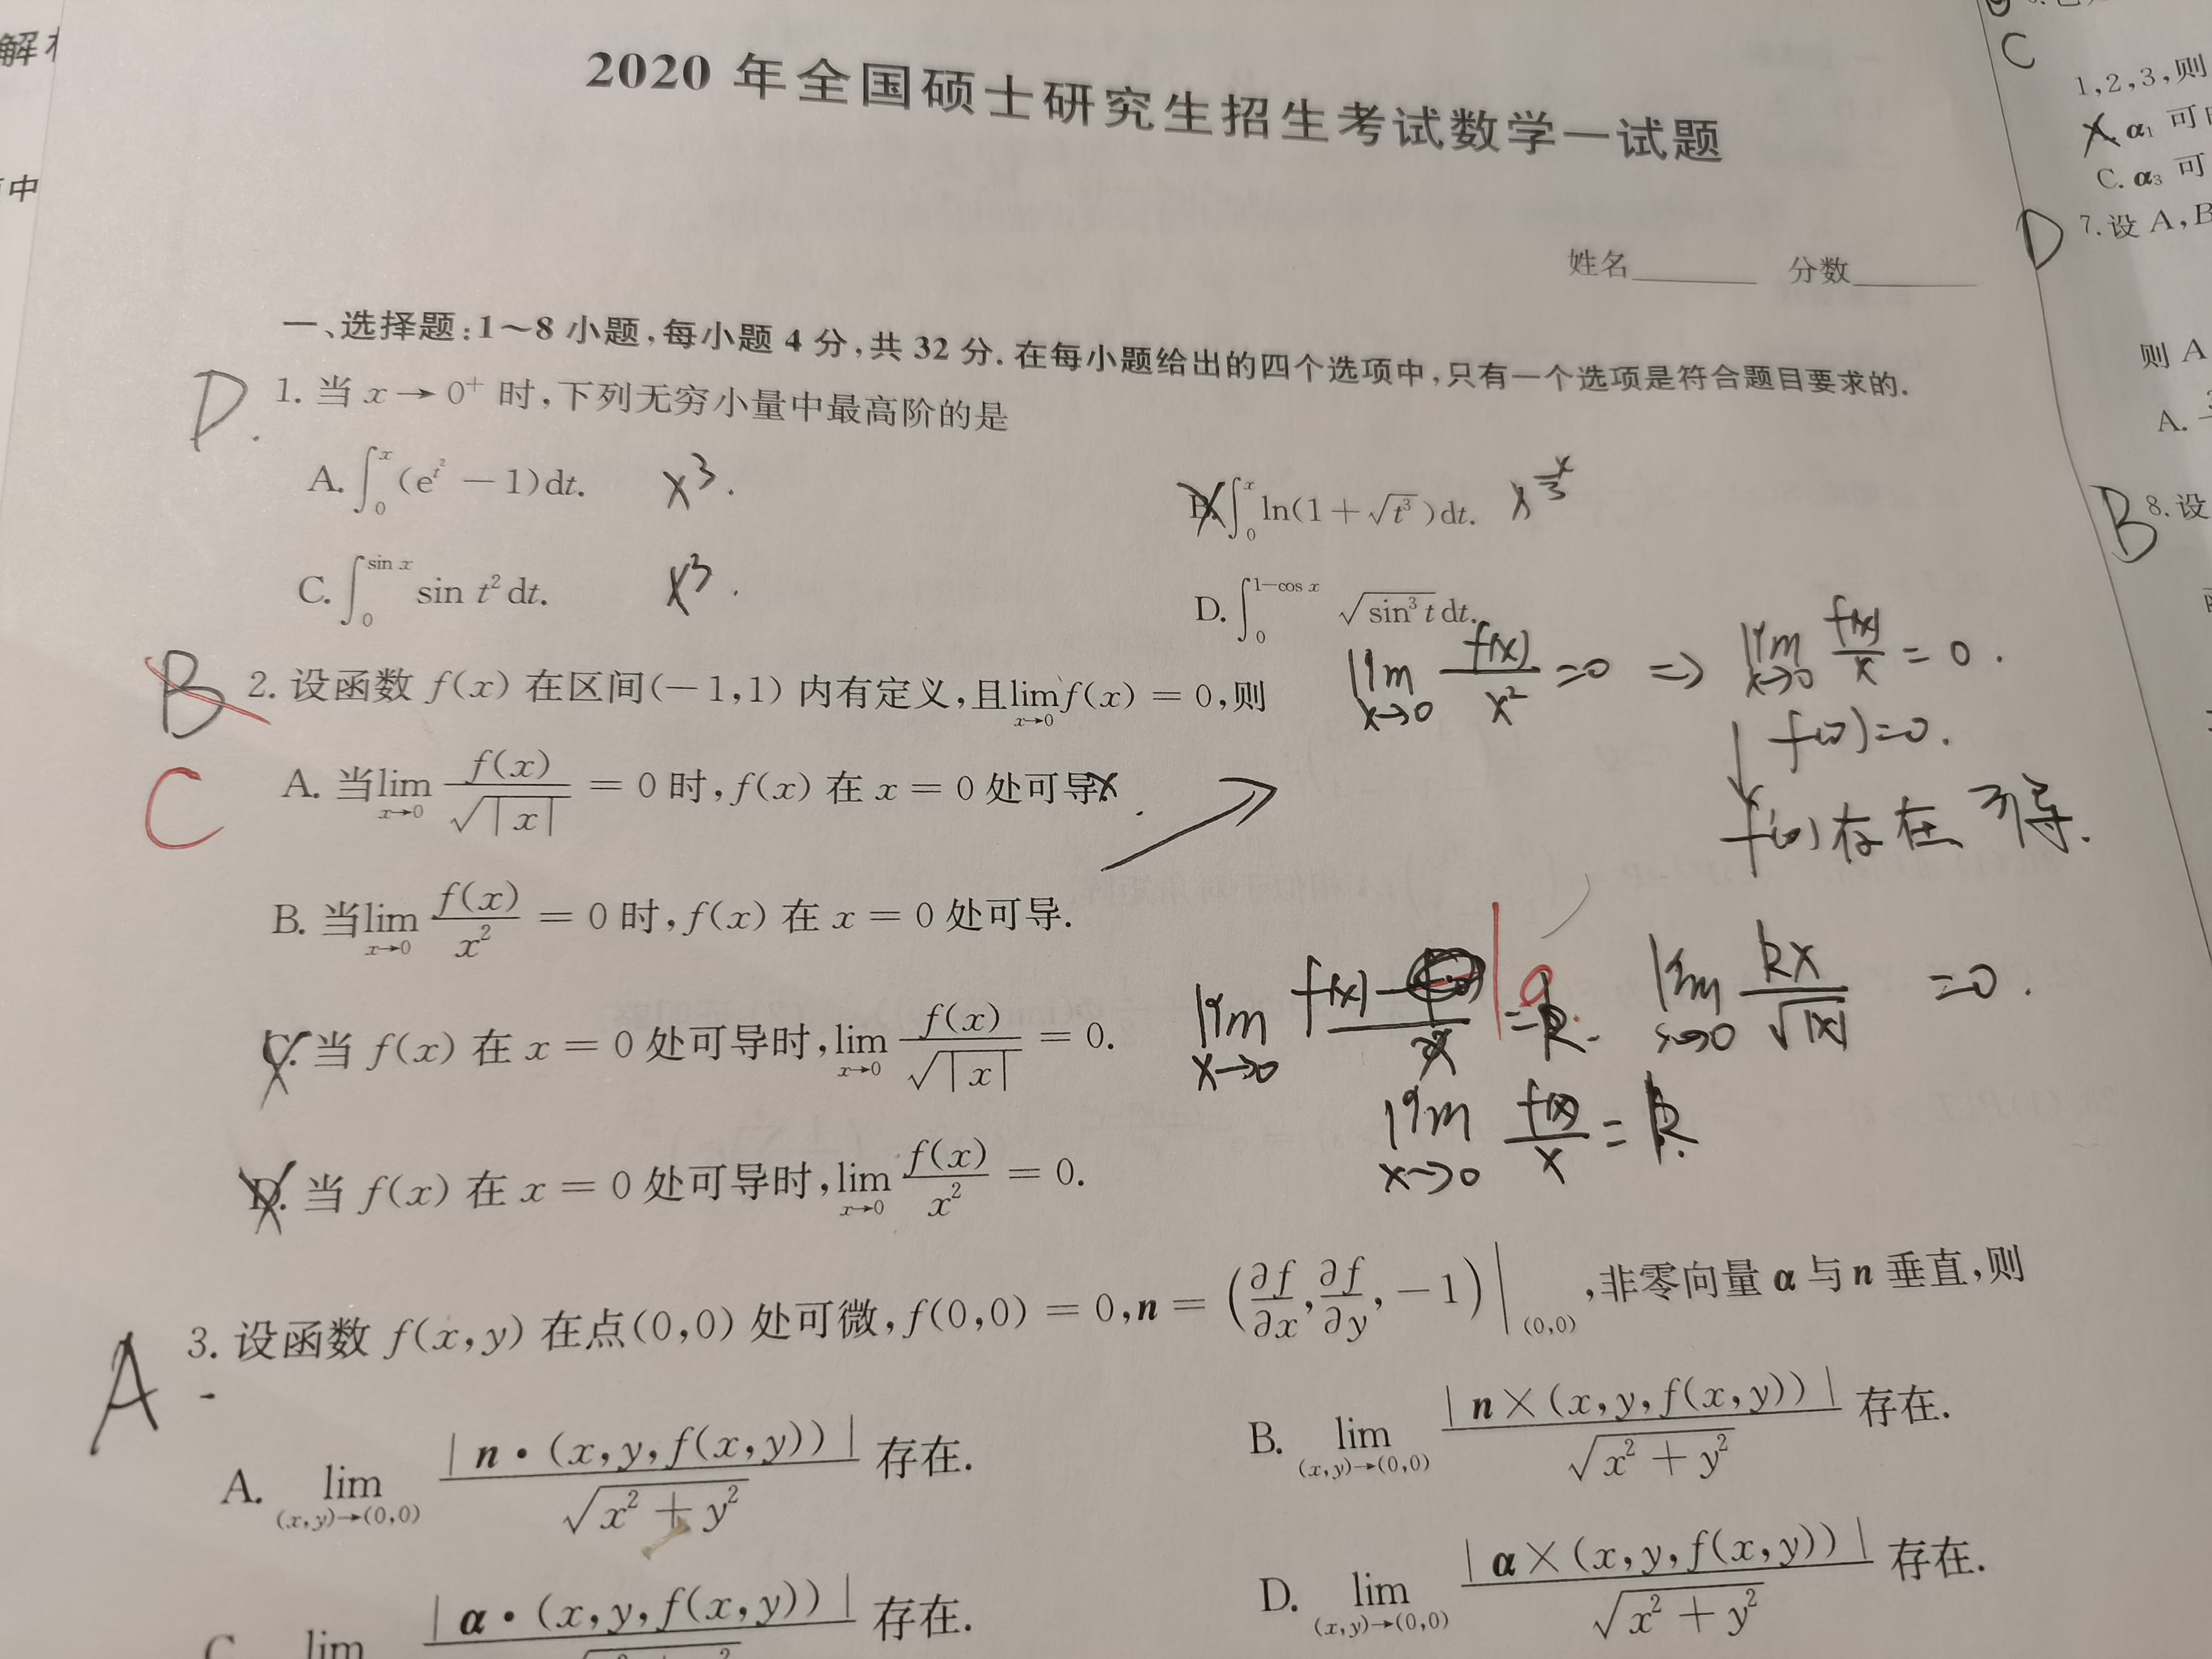 解
中
2020 年全国硕士研究生招生考试数学一试题
姓名______ 分数______
一、选择题:1～8 小题,每小题 4 分,共 32 分. 在每小题给出的四个选项中,只有一个选项是符合题目要求的.
D. 1. 当 x → 0⁺ 时,下列无穷小量中最高阶的是
A. ∫₀ˣ (e^{t²} − 1)dt. x³.
B. ∫₀ˣ ln(1 + √(t³))dt.
C. ∫₀^{sin x} sin t² dt. x³.
D. ∫₀^{1−cos x} √(sin³ t) dt.
B 2. 设函数 f(x) 在区间(−1,1) 内有定义,且 lim_{x→0} f(x) = 0,则
lim_{x→0} f(x)/x² =0 ⇒ lim_{x→0} f(x)/x = 0.
f(0)=0.
f'(0)存在 可导.
C
A. 当 lim_{x→0} f(x)/√|x| = 0 时,f(x) 在 x = 0 处可导.
B. 当 lim_{x→0} f(x)/x² = 0 时,f(x) 在 x = 0 处可导.
C. 当 f(x) 在 x = 0 处可导时,lim_{x→0} f(x)/√|x| = 0.
lim_{x→0} kx/√|x| =0.
lim_{x→0} f(x)/x = k.
D. 当 f(x) 在 x = 0 处可导时,lim_{x→0} f(x)/x² = 0.
A 3. 设函数 f(x,y) 在点(0,0) 处可微,f(0,0) = 0,n = (∂f/∂x, ∂f/∂y, −1)|_{(0,0)},非零向量 α 与 n 垂直,则
A. lim_{(x,y)→(0,0)} |n·(x,y,f(x,y))|/√(x² + y²) 存在.
B. lim_{(x,y)→(0,0)} |n×(x,y,f(x,y))|/√(x² + y²) 存在.
C. lim |α·(x,y,f(x,y))| 存在.
D. lim_{(x,y)→(0,0)} |α×(x,y,f(x,y))|/√(x² + y²) 存在.
C
1,2,3,则
A. α₁ 可
C. α₃ 可
D 7. 设 A,B
则 A
A.
B 8. 设